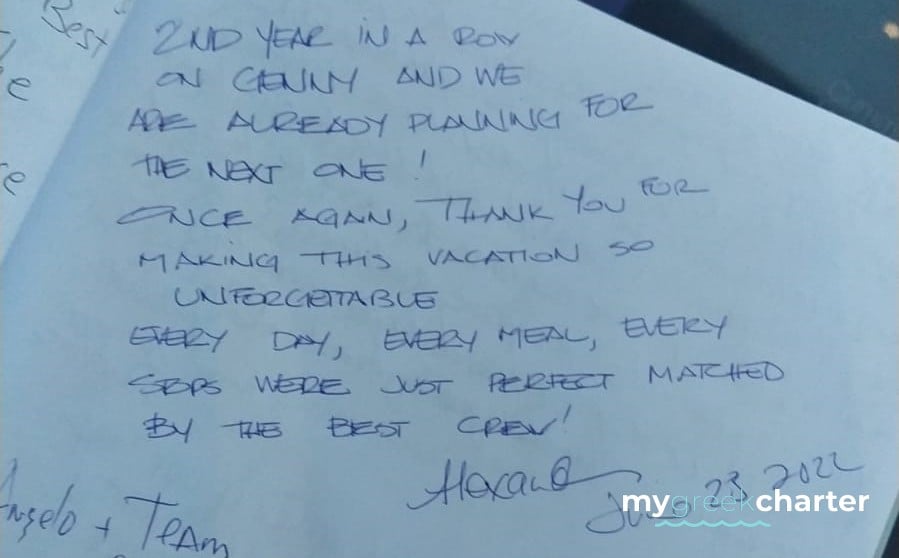 Best
2ND YEAR IN A ROW
ON GENNY AND WE
ARE ALREADY PLANNING FOR
THE NEXT ONE !
ONCE AGAIN, THANK YOU FOR
MAKING THIS VACATION SO
UNFORGETTABLE
EVERY DAY, EVERY MEAL, EVERY
STOPS WERE JUST PERFECT MATCHED
BY THE BEST CREW!
23 2022
Angelo + TEAM
mygreekcharter